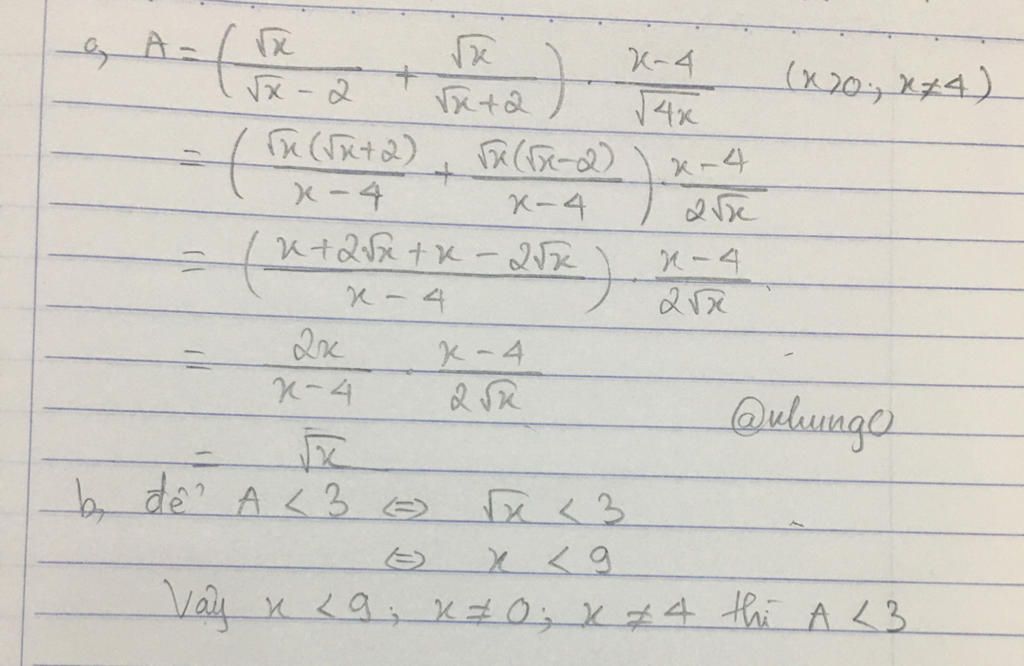 a, A = (√x/(√x − 2) + √x/(√x+2)) · (x−4)/√4x (x>0; x≠4)
= (√x(√x+2)/(x−4) + √x(√x−2)/(x−4)) · (x−4)/2√x
= ((x+2√x+x−2√x)/(x−4)) · (x−4)/2√x
= 2x/(x−4) · (x−4)/2√x
@nhung0
= √x
b, để A < 3 ⇔ √x < 3
⇔ x < 9
Vậy x < 9; x ≠ 0; x ≠ 4 thì A < 3